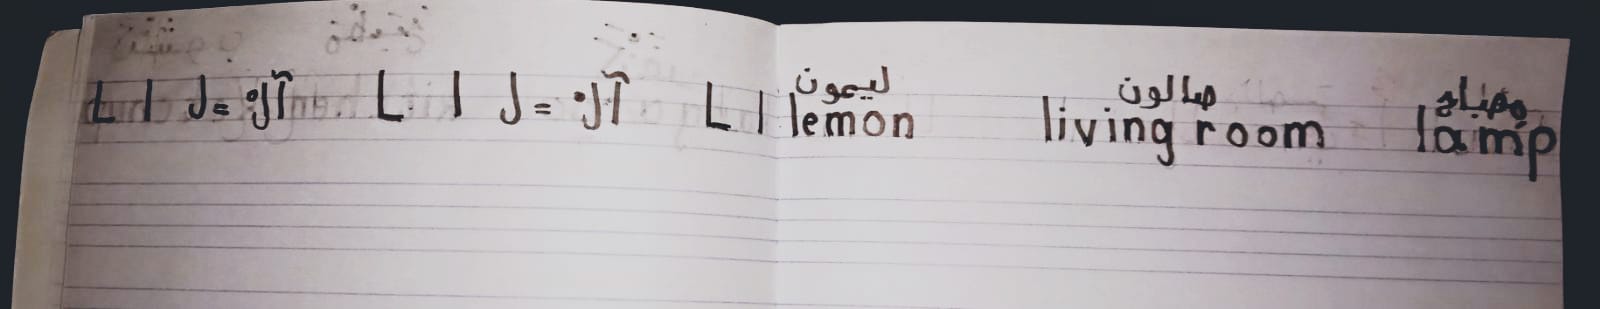 ليمون صالون مصباح
L l ل = آل: L l ل = آل: L l lemon living room lamp